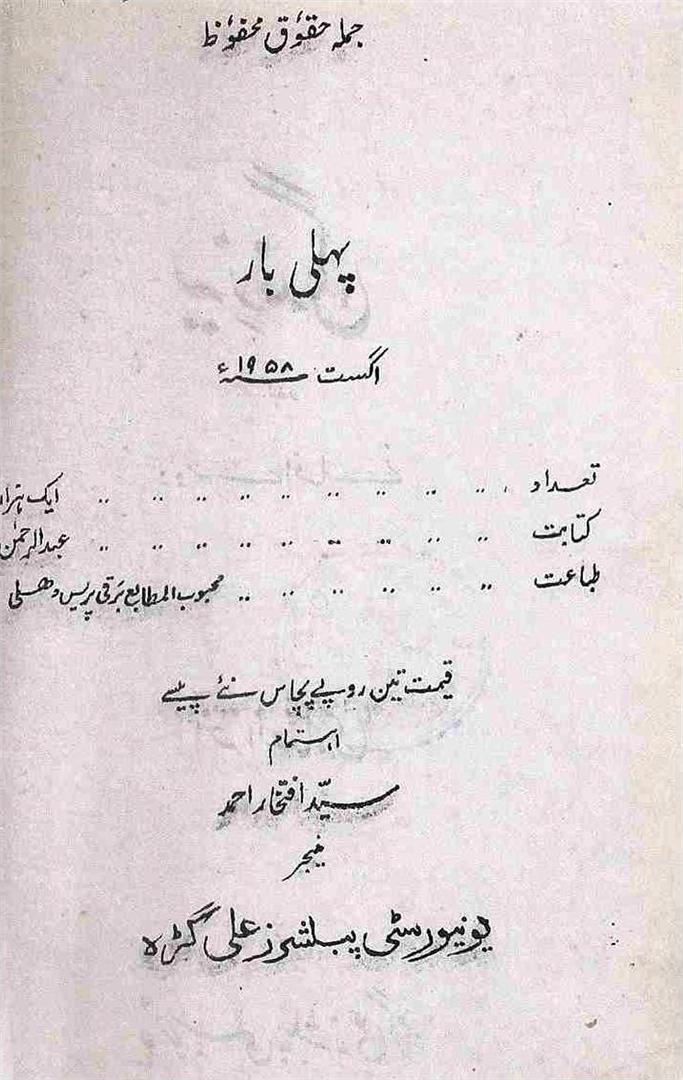 جملہ حقوٗق محفوٗظ
پہلی بار
اگست ۱۹۵۸ء
تعداد ۔۔ ۔۔ ۔۔ ۔۔ ۔۔ ۔۔ ۔۔ ۔۔ ۔۔ ایک ہزار
کتابت ۔۔ ۔۔ ۔۔ ۔۔ ۔۔ ۔۔ ۔۔ ۔۔ ۔۔ عبدالرحمٰن
طباعت ۔۔ ۔۔ ۔۔ ۔۔ ۔۔ ۔۔ محبوب المطابع برقی پریس دھلی
قیمت تین روپے پچاس نئے پیسے
اہتمام
سیّد افتخار احمد
منیجر
یونیورسٹی پبلشرز علی گڑہ